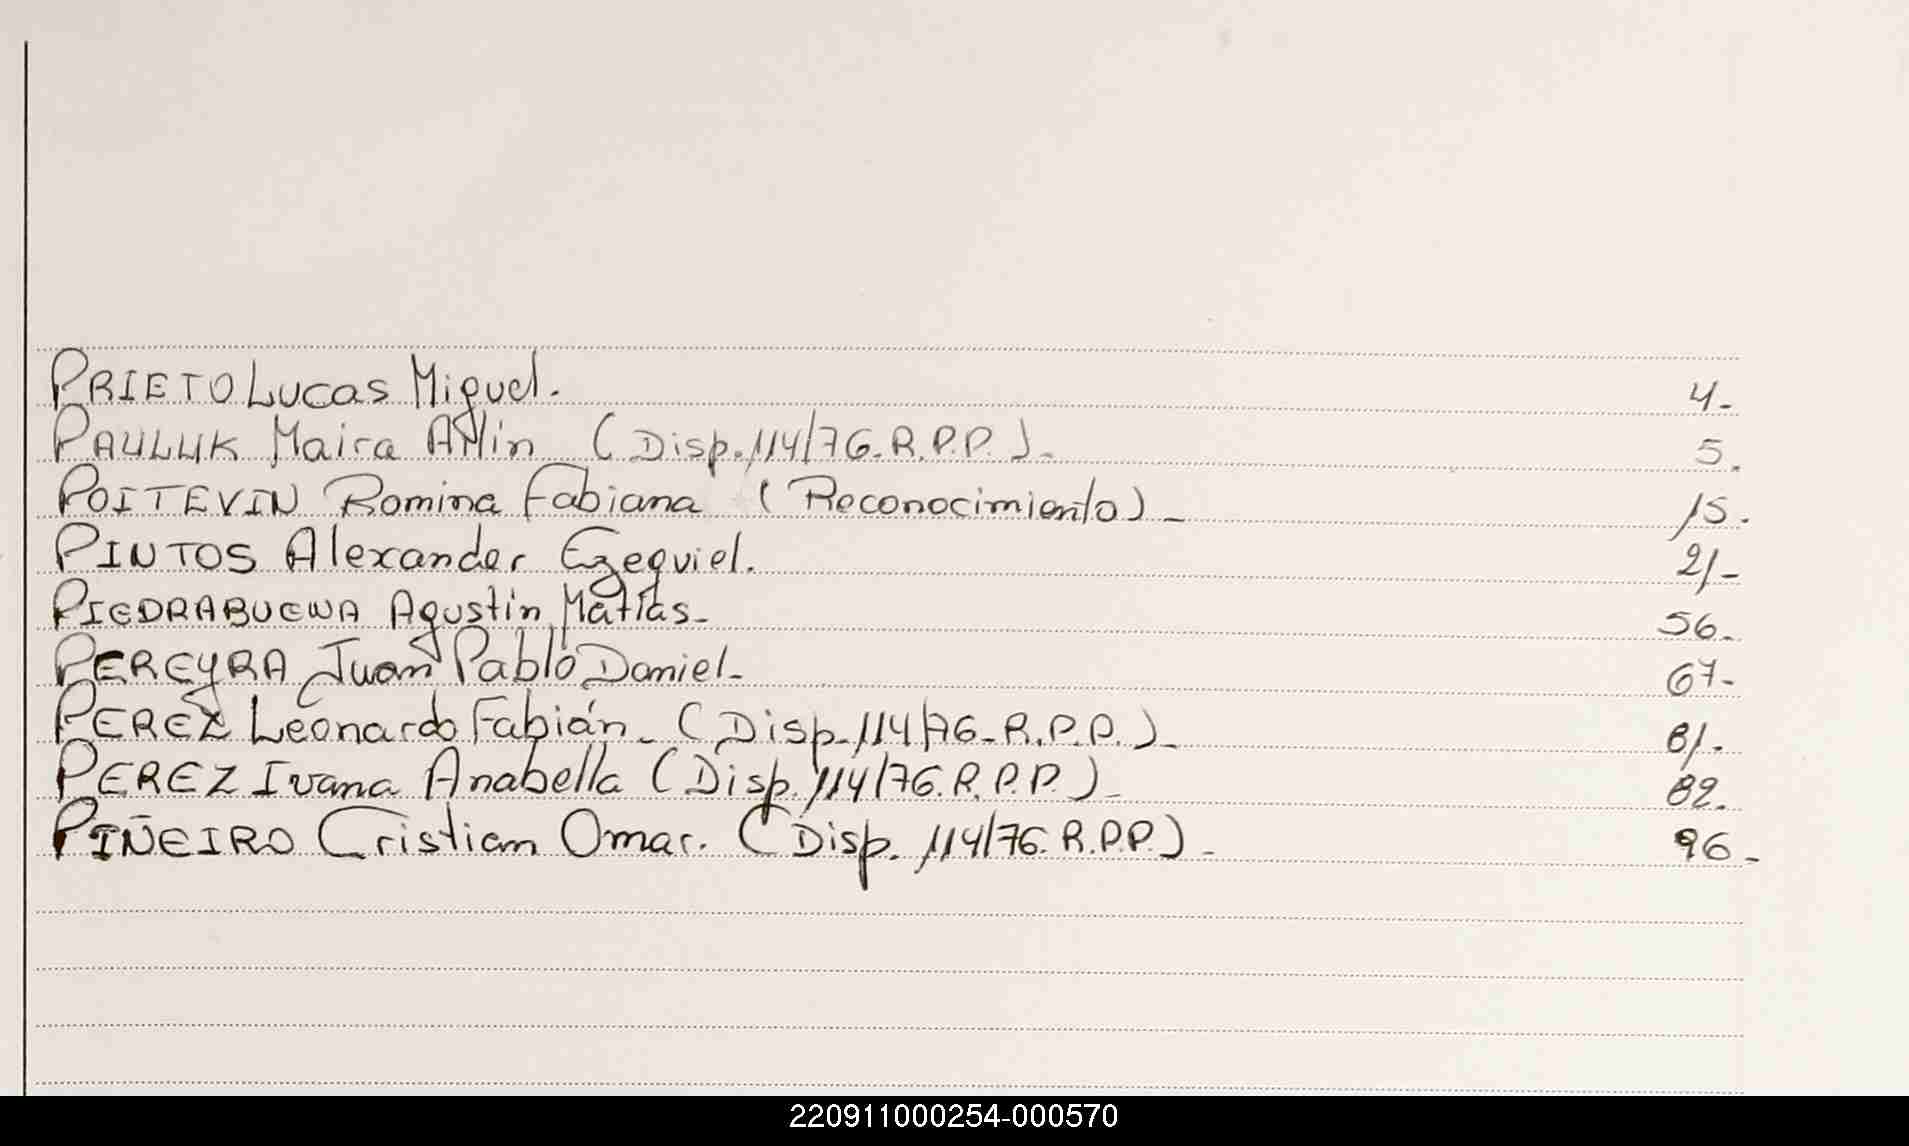 PRIETO Lucas Miguel. 4-
PAULUK Maira Ailin (Disp. 114/76. R.P.P.)- 5.
POITEVIN Romina Fabiana (Reconocimiento)- 15.
PINTOS Alexander Ezequiel. 21-
PIEDRABUENA Agustin Matías- 56-
PEREYRA Juan Pablo Daniel- 67-
PEREZ Leonardo Fabián- (Disp- 114/76- R.P.P.)- 81-
PEREZ Ivana Anabella (Disp. 114/76. R.P.P.)- 82.
PIÑEIRO Cristian Omar. (Disp. 114/76. R.P.P.)- 96-
220911000254-000570